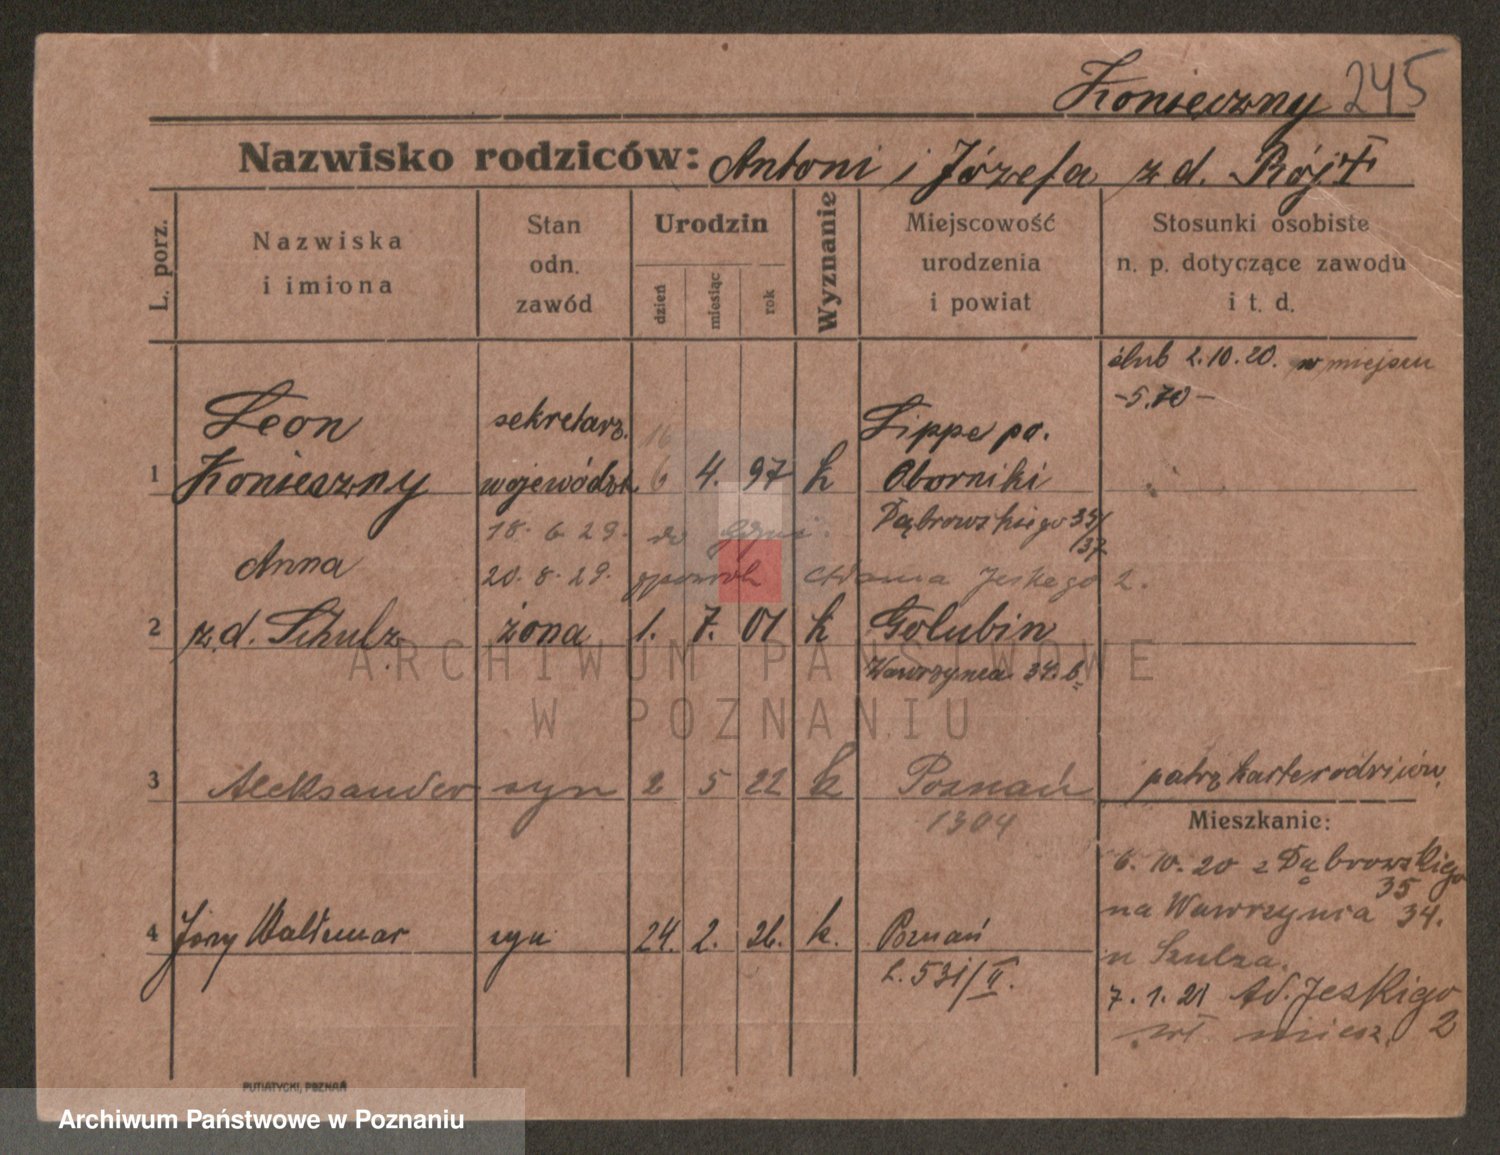 Konieczny 245
Nazwisko rodziców: Antoni i Józefa z d. Rójt
L. porz.
Nazwiska
i imiona
Stan
odn.
zawód
Urodzin
dzień
miesiąc
rok
Wyznanie
Miejscowość
urodzenia
i powiat
Stosunki osobiste
n. p. dotyczące zawodu
i t. d.
ślub 2.10.20. w miejscu
-5.70-
Leon sekretarz. 16 Lippe po.
1 Konieczny wojewódzk. 6 4. 97 k Oborniki
Dąbrowskiego 35/
37
18. 6 29. do Gdyni.
Anna 20. 8. 29. zpowrot Adama Jeskego 2.
2 z d. Schulz żona 1. 7. 01 k Golubin
Wawrzynca 34. b
3 Aleksander syn 2 5 22 k Poznań patrz karte rodziców
1304
Mieszkanie:
6. 10. 20 z Dąbrowskigo
35
na Wawrzynca 34.
4 Jerzy Waldemar syn 24. 2. 26. k. Poznań
L. 531/II.
u Szulza.
7. 1. 21 Ad. Jeskigo
2
wł. miesz.
PUTIATYCKI, POZNAŃ
ARCHIWUM PAŃSTWOWE
W POZNANIU
Archiwum Państwowe w Poznaniu